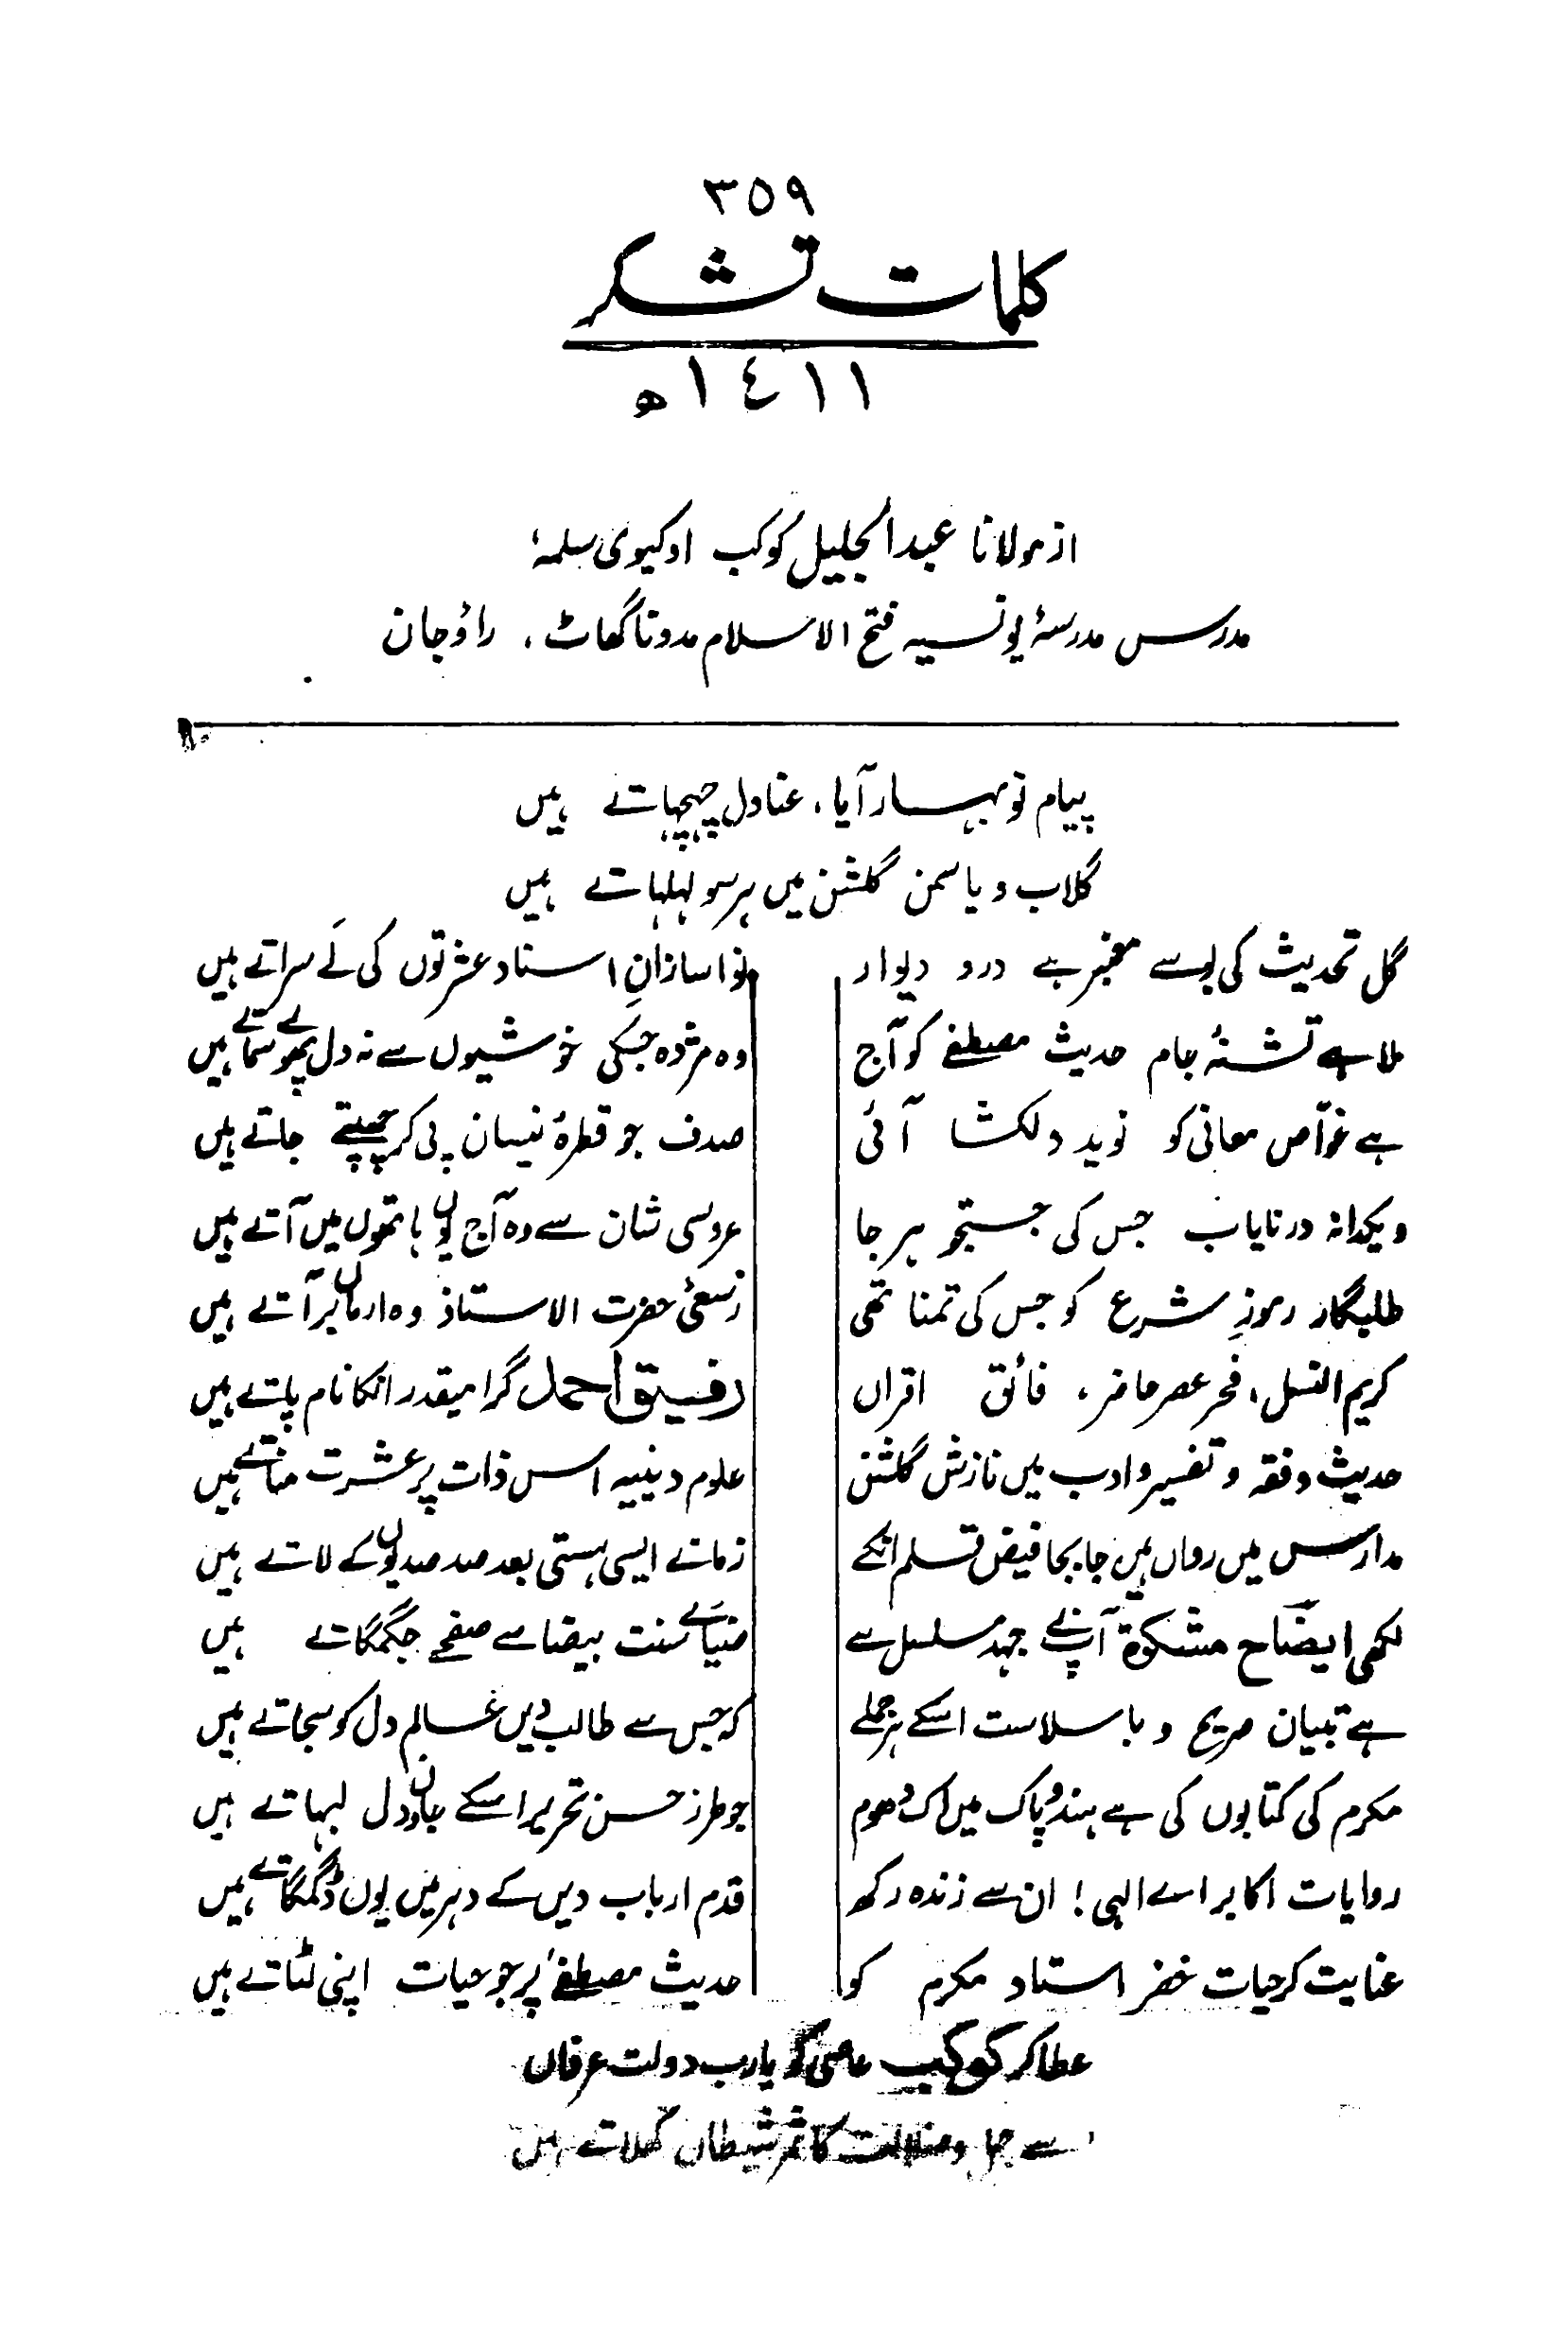 ٣٥٩
کلمات تشکر
١٤١١ھ
از مولانا عبدالجلیل کوکب اوکیوی سلمہٗ
مدرس مدرسۂ یونسیہ فتح الاسلام مدوناگھاٹ، راؤجان
پیام نو بہار آیا، عنادل چہچہاتے ہیں
گلاب و یاسمن گلشن میں ہر سو لہلہاتے ہیں
گل تحدیث کی بو سے مخبر ہے درو دیوار
نواسازانِ اسناد عشرتوں کی لَے سراتے ہیں
ملا ہے تشنۂ جام حدیث مصطفےٰ کو آج
وہ مژدہ جسکی خوشیوں سے نہ دل پھولے سماتے ہیں
ہے غوّاص معانی کو نوید دلکشا آئی
صدف جو قطرۂ نیسان پی کر چھپتے جاتے ہیں
ویکدانہ در نایاب جس کی جستجو ہر جا
عروسی شان سے وہ آج یوں ہاتھوں میں آتے ہیں
طلبگار رموزِ شرع کو جس کی تمنا تھی
زسعیٔ حضرت الاستاذ وہ ارماں بر آتے ہیں
کریم النسل، فخر عصر حاضر، فائق اقراں
رفیق احمد گرامیقدر انکا نام پاتے ہیں
حدیث و فقہ و تفسیر و ادب میں نازش گلشن
علوم دینیہ اس ذات پر عشرت مناتے ہیں
مدارس میں رواں ہیں جا بجا فیض قلم انکے
زمانے ایسی ہستی بعد صد صدیوں کے لاتے ہیں
لکھی ایضاح مشکوۃ آپنے جہد مسلسل سے
ضیائے سنت بیضا سے صفحے جگمگاتے ہیں
ہے تبیان صریح و با سلاست اسکے ہر جملے
کہ جس سے طالب دیں عالم دل کو سجاتے ہیں
مکرم کی کتابوں کی ہے ہند و پاک میں اک دھوم
جو طرز حسن تحریر اسکے جان و دل لبہاتے ہیں
روایات اکابر اے الہی! ان سے زندہ رکھ
قدم ارباب دیں کے دہر میں یوں ڈگمگاتے ہیں
عنایت کر حیات خضر استاد مکرم کو
حدیث مصطفےٰ پر جو حیات اپنی لٹاتے ہیں
عطا کر کوکب عاصی کو یارب دولت عرفاں
سے جہل و ضلالت کا ثمر شیطاں کھلاتے ہیں